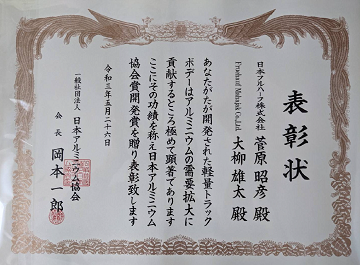 表彰状
日本フルハーフ株式会社 菅原 昭彦 殿
Fruehauf Mahajak Co., Ltd. 大柳 雄太 殿
あなたがたが開発された軽量トラック
ボデーはアルミニウムの需要拡大に
貢献するところ極めて顕著であります
ここにその功績を称え日本アルミニウム
協会賞開発賞を贈り表彰致します
令和三年五月二十六日
一般社団法人 日本アルミニウム協会
会長 岡本 一郎